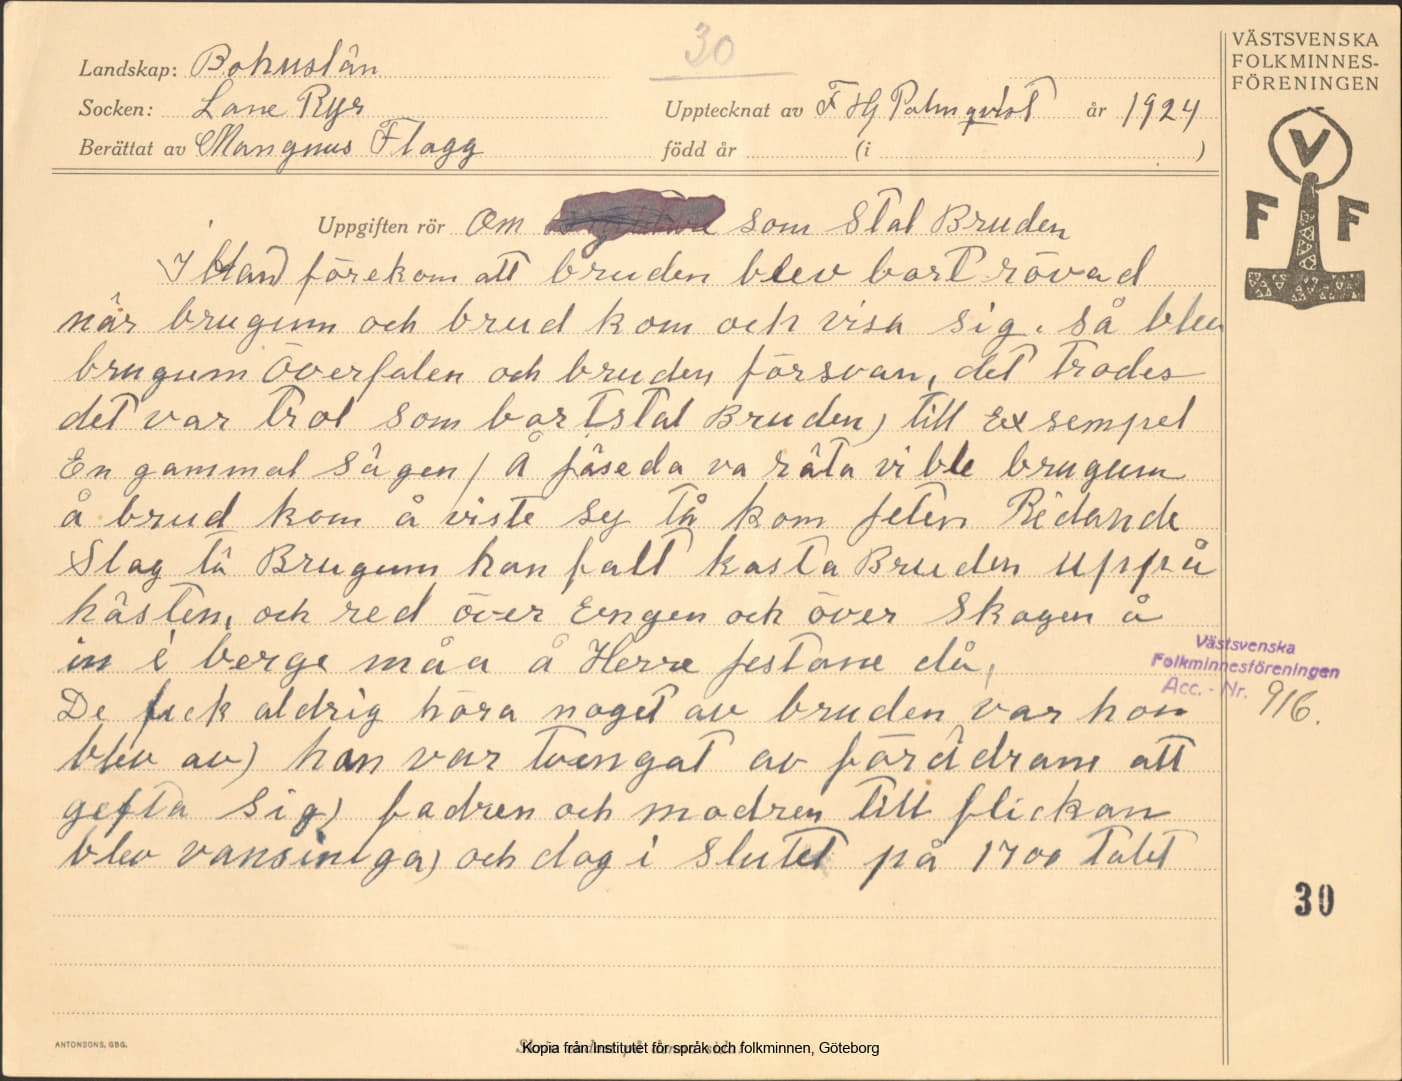 30
VÄSTSVENSKA
FOLKMINNES-
FÖRENINGEN
Landskap: Bohuslän
Socken: Lane Ryr
Upptecknat av F Hj Palmqvist år 1924
Berättat av Mangnus Flagg
född år (i )
V
F F
Uppgiften rör Om som Stal Bruden
I bland förekom att bruden blev bort rövad
när brugum och brud kom och visa sig. så blev
brugum överfalen och bruden försvan, det trodes
det var trol som bortstal Bruden) till Exsempel
En gammal Sägen / Å jäseda va räta vi ble brugum
å brud kom å viste sy tå kom jeten Ridande
Slag tå Brugum han falt kasta Bruden uppå
hästen, och red över Engen och över Skogen å
in i berge måa å Herre jestane då,
De fick aldrig höra noget av bruden var hon
blev av) hon var tvingat av föräldrarne att
gefta Sig) fadren och modren till flickan
blev vansiniga) och dog i Slutet på 1700 talet
Västsvenska
Folkminnesföreningen
Acc. - Nr. 916.
30
ANTONSONS, GBG.
Kopia från Institutet för språk och folkminnen, Göteborg